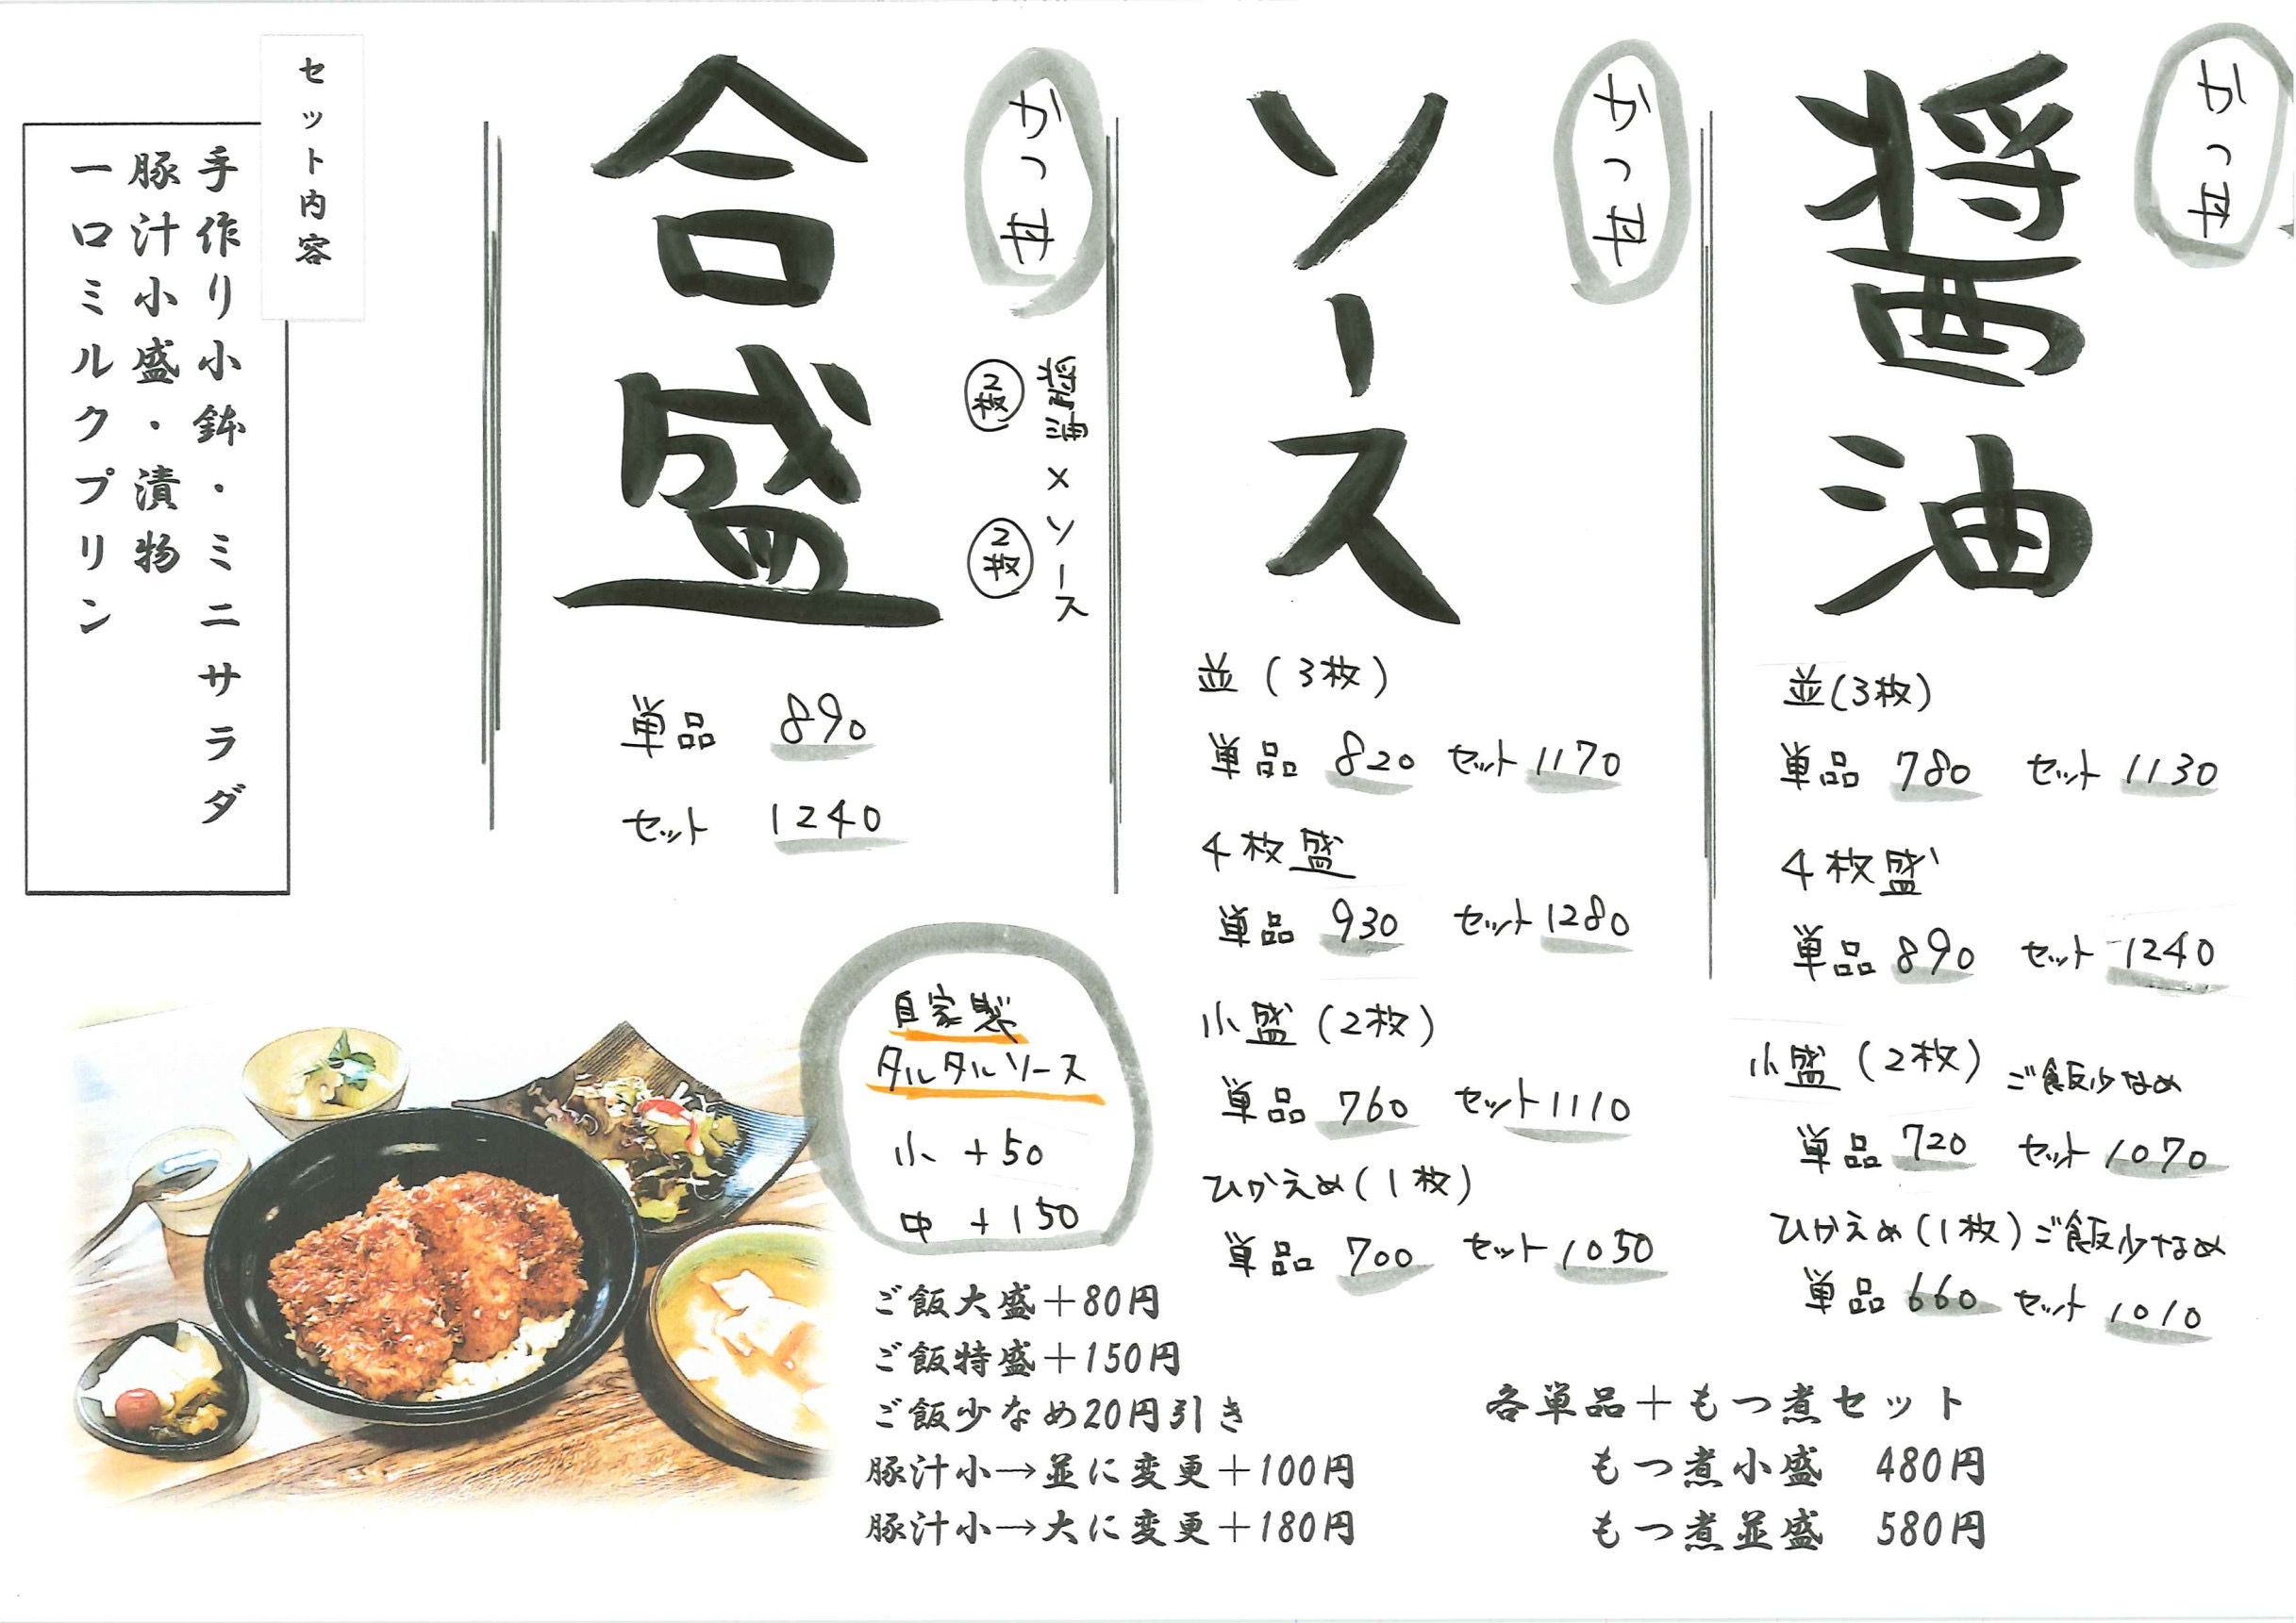 かつ丼
醤油
並(3枚)
単品 780 セット 1130
4枚盛
単品 890 セット 1240
小盛(2枚)ご飯少なめ
単品 720 セット 1070
ひかえめ(1枚)ご飯少なめ
単品 660 セット 1010
かつ丼
ソース
並(3枚)
単品 820 セット 1170
4枚盛
単品 930 セット 1280
小盛(2枚)
単品 760 セット 1110
ひかえめ(1枚)
単品 700 セット 1050
かつ丼
醤油×ソース
2枚 2枚
合盛
単品 890
セット 1240
セット内容
手作り小鉢・ミニサラダ
豚汁小盛・漬物
一口ミルクプリン
自家製
タルタルソース
小 +50
中 +150
ご飯大盛+80円
ご飯特盛+150円
ご飯少なめ20円引き
豚汁小→並に変更+100円
豚汁小→大に変更+180円
各単品+もつ煮セット
もつ煮小盛 480円
もつ煮並盛 580円